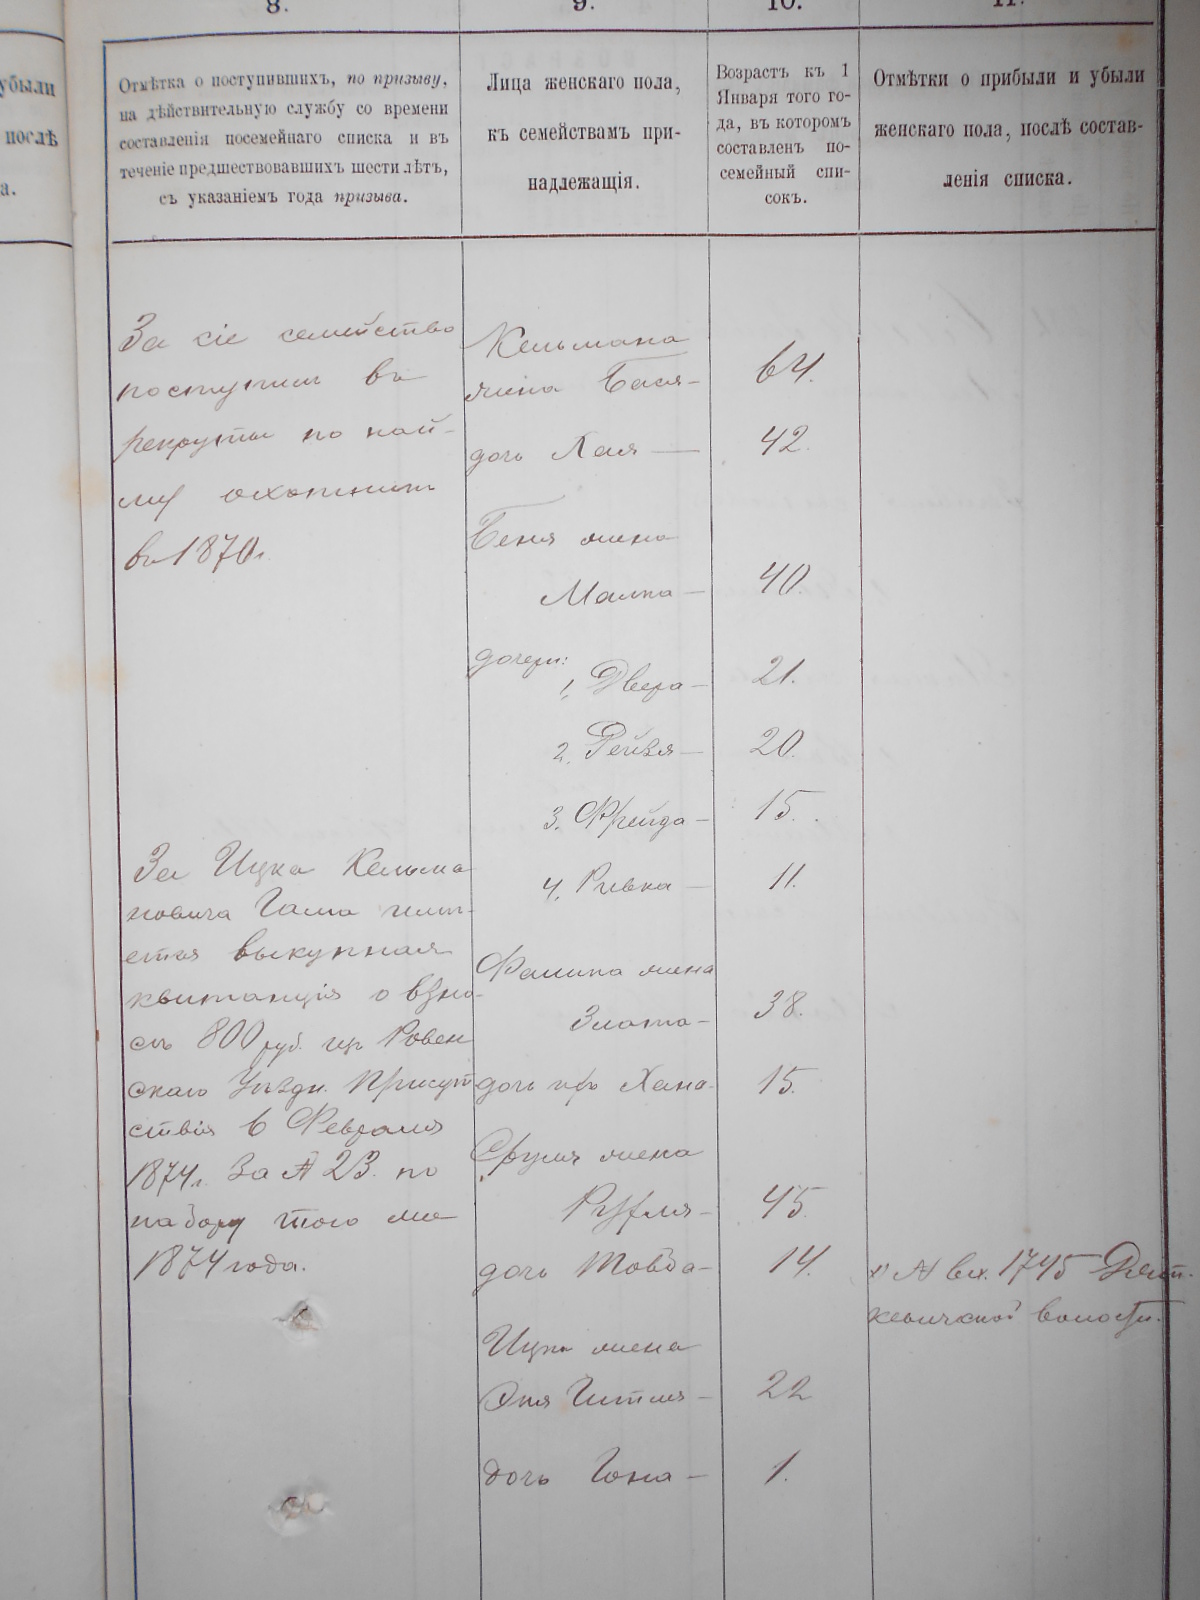 убыли
послѣ
а.
8.
9.
10.
11.
Отмѣтка о поступившихъ, по призыву,
на дѣйствительную службу со времени
составленія посемейнаго списка и въ
теченіе предшествовавшихъ шести лѣтъ,
съ указаніемъ года призыва.
Лица женскаго пола,
къ семействамъ при-
надлежащія.
Возрастъ къ 1
Января того го-
да, въ которомъ
составленъ по-
семейный спи-
сокъ.
Отмѣтки о прибыли и убыли
женскаго пола, послѣ состав-
ленія списка.
За сіе семейство
поступилъ въ
рекруты по най-
му охотникъ
въ 1870 г.
За Ицка Кельма
новича Гама имѣ-
ется выкупная
квитанція о взно-
съ 800 руб. изъ Ровен
скаго Уѣздн. Присут
ствія 6 Февраля
1874 г. За № 23. по
набору того же
1874 года.
Кельмана
жена Бася- 64.
дочь Хая — 42.
Беня жена
Малка - 40.
дочери:
1, Двера - 21.
2, Рейзя - 20.
3. Фрейда - 15.
4, Ривка - 11.
жена
Злата - 38.
дочь его Хана- 15.
Сруля жена
- 45
дочь Товба - 14.
№ вх. 1745
волости.
Ицка жена
Эня Гитля - 22
дочь - 1.